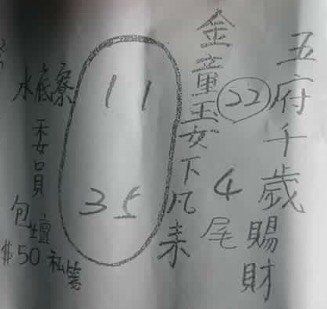 五府千歲賜財
22 4尾
金童玉女下凡来
11
35
水底寮
委員
包壇
$50